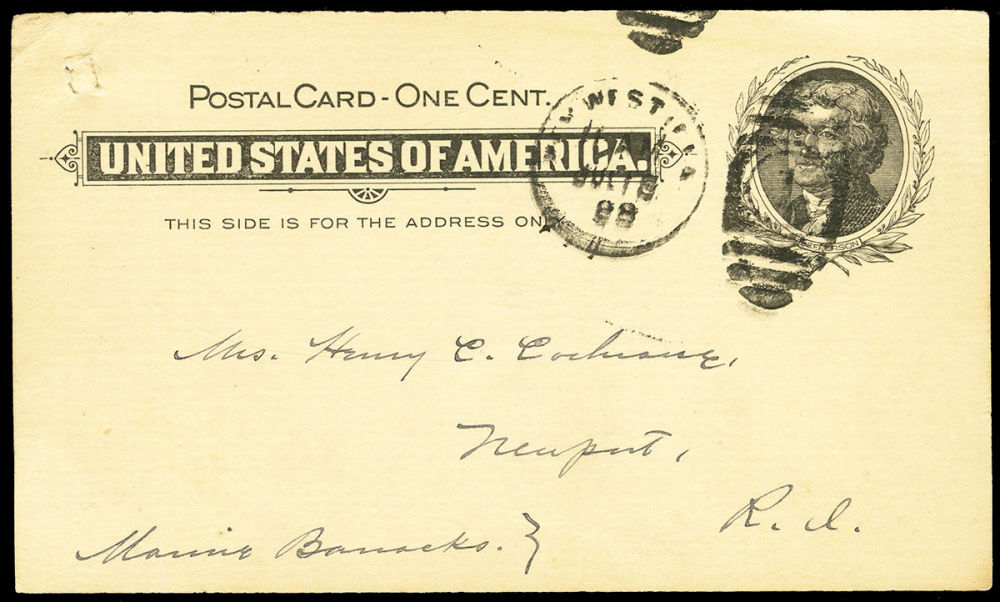 POSTAL CARD - ONE CENT.
UNITED STATES OF AMERICA.
THIS SIDE IS FOR THE ADDRESS ONLY
WEST
98
JEFFERSON
Mrs. Henry C. Cochrane,
Newport,
R. I.
Marine Barracks.